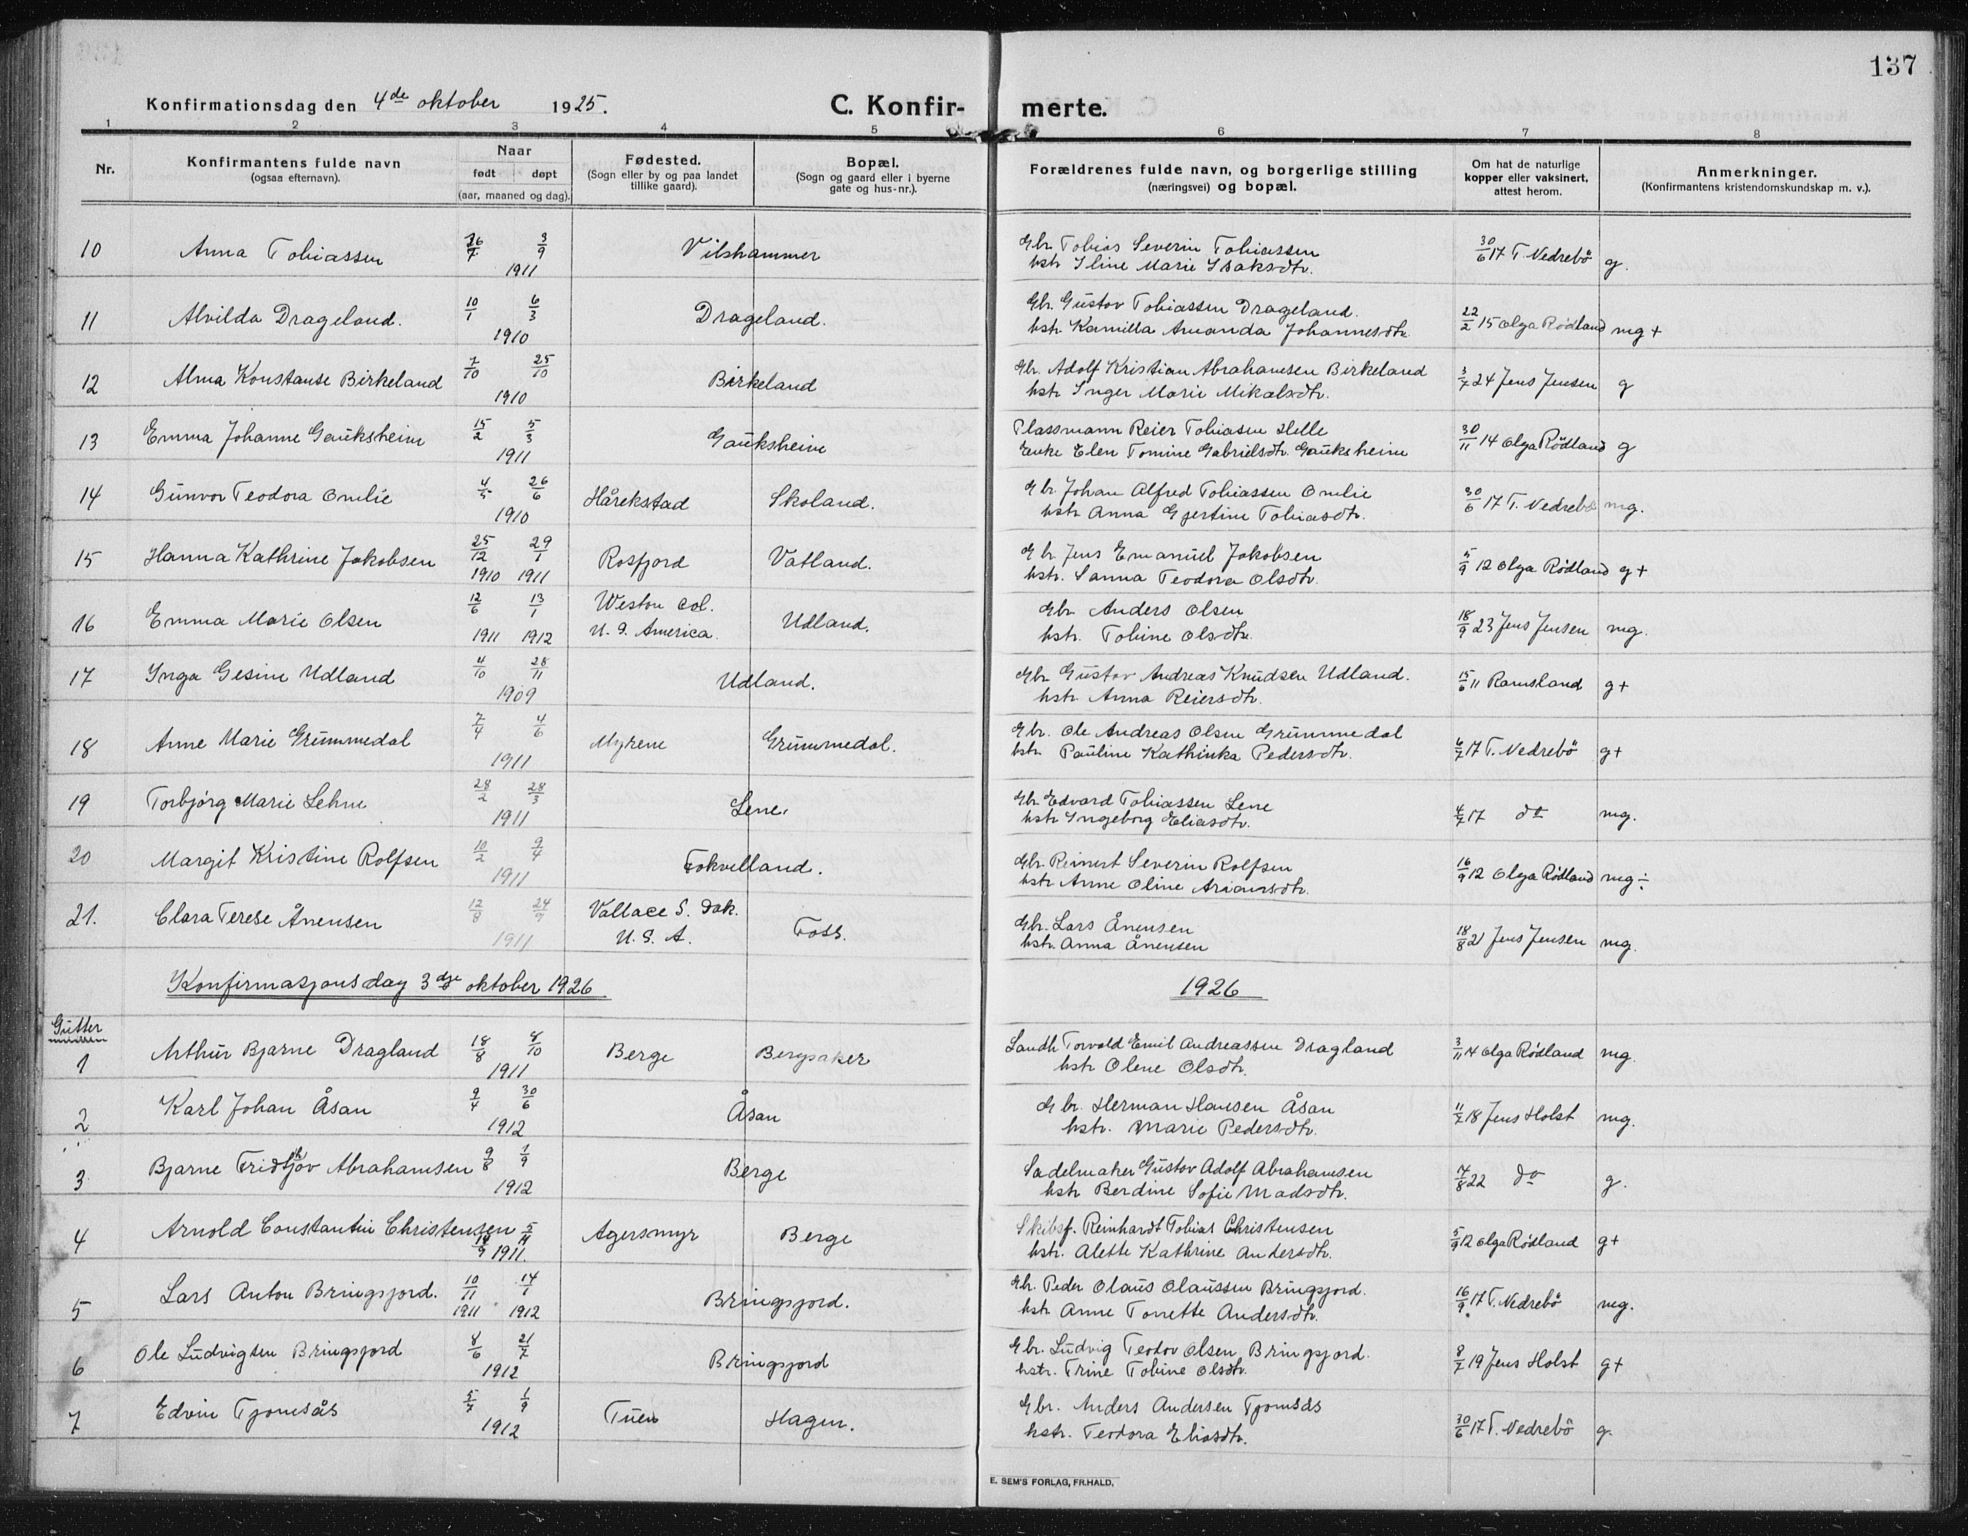 137
Konfirmationsdag den 4de oktober 1925. C. Konfir- merte.
1 2 3 4 5 6 7 8
Nr. Konfirmantens fulde navn (ogsaa efternavn). Naar født døpt (aar, maaned og dag). Fødested. (Sogn eller by og paa landet tillike gaard). Bopæl. (Sogn og gaard eller i byerne gate og hus-nr.). Forældrenes fulde navn, og borgerlige stilling (næringsvei) og bopæl. Om hat de naturlige kopper eller vaksinert, attest herom. Anmerkninger. (Konfirmantens kristendomskundskap m. v.).
10 Anna Tobiassen 26/7 3/9 1911 Vilshammer Gbr. Tobias Severin Tobiassen hstr. Iline Marie Isaksdtr. 30/6 17 T. Nedrebö g.
11 Alvilda Drageland. 10/1 6/3 1910 Drageland. Gbr. Gustav Tobiassen Drageland. hstr. Kamilla Amanda Johannesdtr. 22/2 15 Olga Rødland mg+
12 Alma Konstanse Birkeland 7/10 25/10 1910 Birkeland Gbr. Adolf Kristian Abrahamsen Birkeland hstr. Inger Marie Mikalsdtr. 3/7 24 Jens Jensen g
13 Emma Johanne Gauksheim 15/2 5/3 1911 Gauksheim Plassmann Reier Tobiasen Helle Enke Elen Tomine Gabrielsdtr. Gauksheim 30/11 14 Olga Rødland g
14 Gunvor Teodora Omlie 4/5 26/6 1910 Hårekstad Skoland. Gbr. Johan Alfred Tobiassen Omlie hstr. Anna Gjertine Tobiasdtr. 30/6 17 T. Nedrebö mg.
15 Hanna Kathrine Jakobsen 25/12 1910 29/1 1911 Rosfjord Vatland. Gbr. Jens Emanuel Jakobsen hstr. Sanna Teodora Olsdtr. 5/9 12 Olga Rødland g+
16 Emma Marie Olsen 12/6 1911 13/1 1912 Weston Col. U. S. America. Udland. Gbr. Anders Olsen hstr. Tobine Olsdtr. 18/9 23 Jens Jensen mg.
17 Inga Gesine Udland 4/10 28/11 1909 Udland. Gbr. Gustav Andreas Knudsen Udland. hstr. Anna Reiersdtr. 15/6 11 Ramsland g+
18 Anne Marie Grummedal 7/4 4/6 1911 Myrene Grummedal. Gbr. Ole Andreas Olsen Grummedal hstr. Pauline Kathinka Pedersdtr. 6/7 17 T. Nedrebö g+
19 Torbjørg Marie Lehne 28/2 28/3 1911 Lene. Gbr. Edvard Tobiassen Lene hstr. Ingeborg Eliasdtr. 4/7 17 do mg.
20 Margit Kristine Rolfsen 10/2 9/4 1911 Fokvelland. Gbr. Reinert Severin Rolfsen hstr. Anne Oline Ariansdtr. 16/9 12 Olga Rødland mg÷
21. Clara Terese Ånensen 12/8 24/9 1911 Vallace S. Dak. U. S. A. Foss. Gbr. Lars Ånensen hstr. Anna Ånensen 18/8 21 Jens Jensen mg.
Konfirmasjonsdag 3dje oktober 1926 1926
Gutter
1 Arthur Bjarne Dragland 18/8 8/10 1911 Berge Bergsaker Landh. Torvald Emil Andreassen Dragland hstr. Olene Olsdtr. 3/11 14 Olga Rødland mg.
2 Karl Johan Åsan 9/4 30/6 1912 Åsan Gbr. Herman Hansen Åsan hstr. Marie Pedersdtr. 11/7 18 Jens Holst mg.
3 Bjarne Fridthjov Abrahamsen 9/8 1/9 1912 Berge Sadelmaker Gustav Adolf Abrahamsen hstr. Berdine Sofie Madsdtr. 4/8 22 do g.
4 Arnold Constantin Christensen 14/9 5/11 1911. Agersmyr Berge Skibsf. Reinhardt Tobias Christensen hstr. Alette Kathrine Andersdtr. 5/9 12 Olga Rødland g+
5 Lars Anton Bringsjord. 10/11 1911 14/1 1912 Bringsjord. Gbr. Peder Olaus Olaussen Bringsjord. hstr. Anne Torrette Andersdtr. 16/9 17 T. Nedrebö mg.
6 Ole Ludvigsen Bringsjord 8/6 21/7 1912 Bringsjord Gbr. Ludvig Teodor Olsen Bringsjord. hstr. Trine Tobine Olsdtr. 8/7 19 Jens Holst g+
7 Edvin Tjomsås 5/7 1/9 1912 Tuen Hagen. Gbr. Anders Andersen Tjomsås hstr. Teodora Eliasdtr. 30/6 17 T. Nedrebö g.
E. SEM'S FORLAG, FR.HALD.